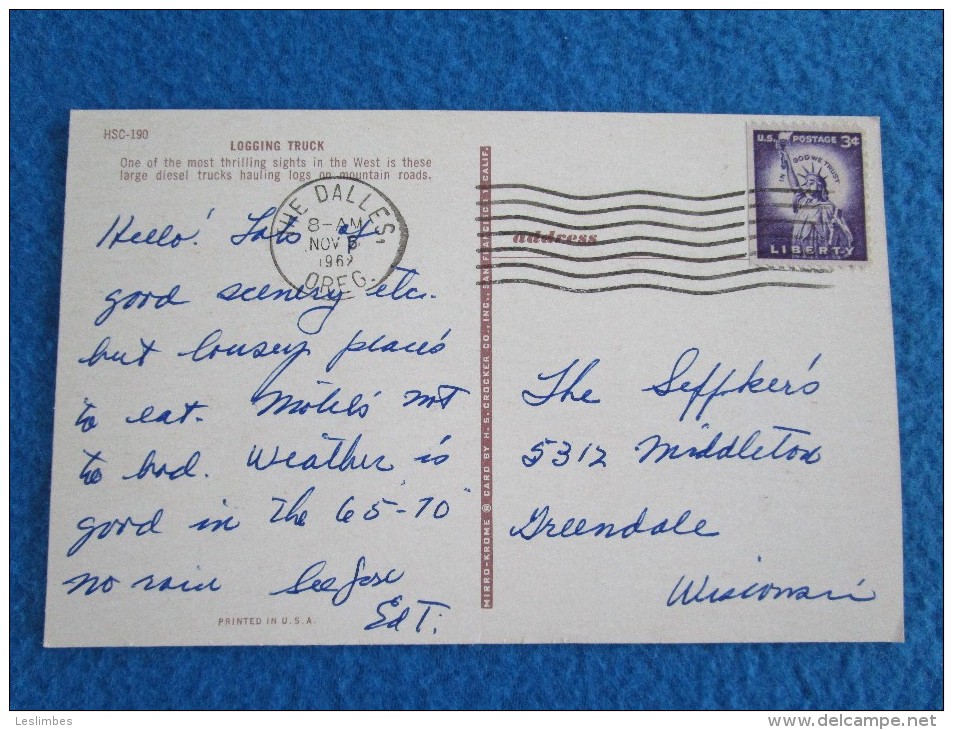 HSC-190
LOGGING TRUCK
One of the most thrilling sights in the West is these
large diesel trucks hauling logs on mountain roads.
Hello! Lots of
good scenery etc.
but lousey place's
to eat. Motel's not
to bad. Weather is
good in the 65-70"
no rain
Ed T.
PRINTED IN U.S.A.
MIRRO-KROME ® CARD BY H. S. CROCKER CO., INC., SAN FRANCISCO 1, CALIF.
THE DALLES,
8-AM
NOV 6
1962
OREG.
address
U.S. POSTAGE 3¢
IN GOD WE TRUST
LIBERTY
The Seffker's
5312 Middleton
Greendale
Wisconsin
Leslimbes
www.delcampe.net